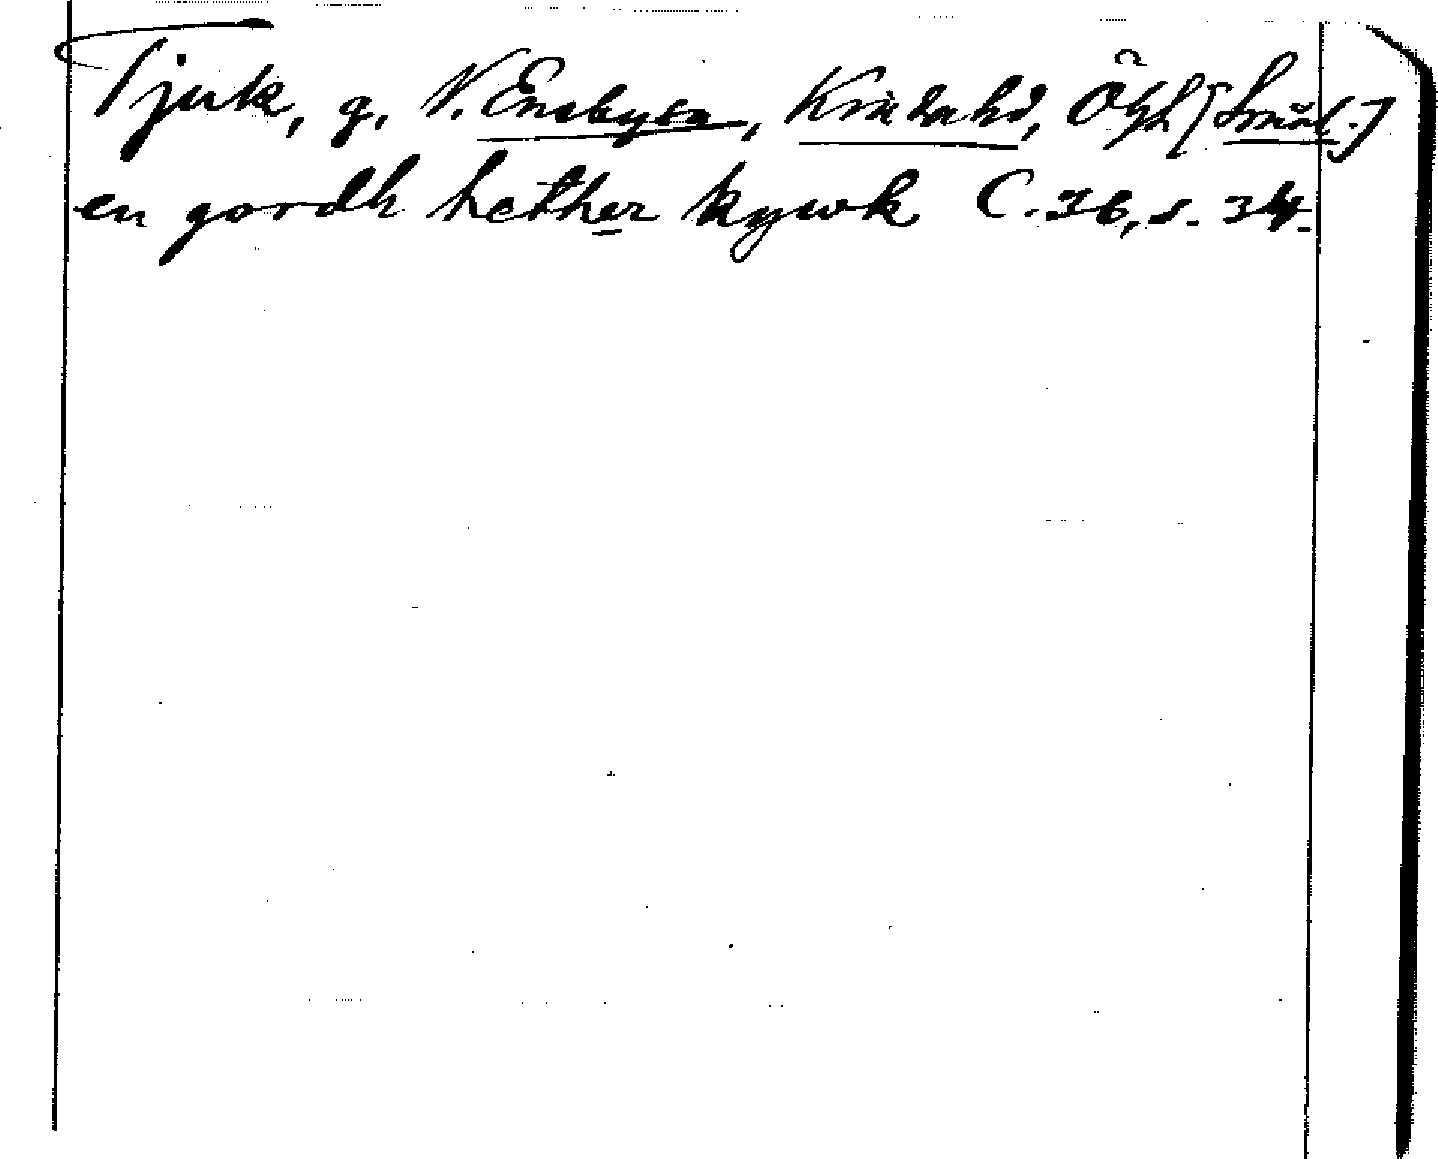 Tjuk, g., V. Eneby sn, Kinda hd, Ögl [Smål.]
en gordh hether kywk C. 36, s. 34.